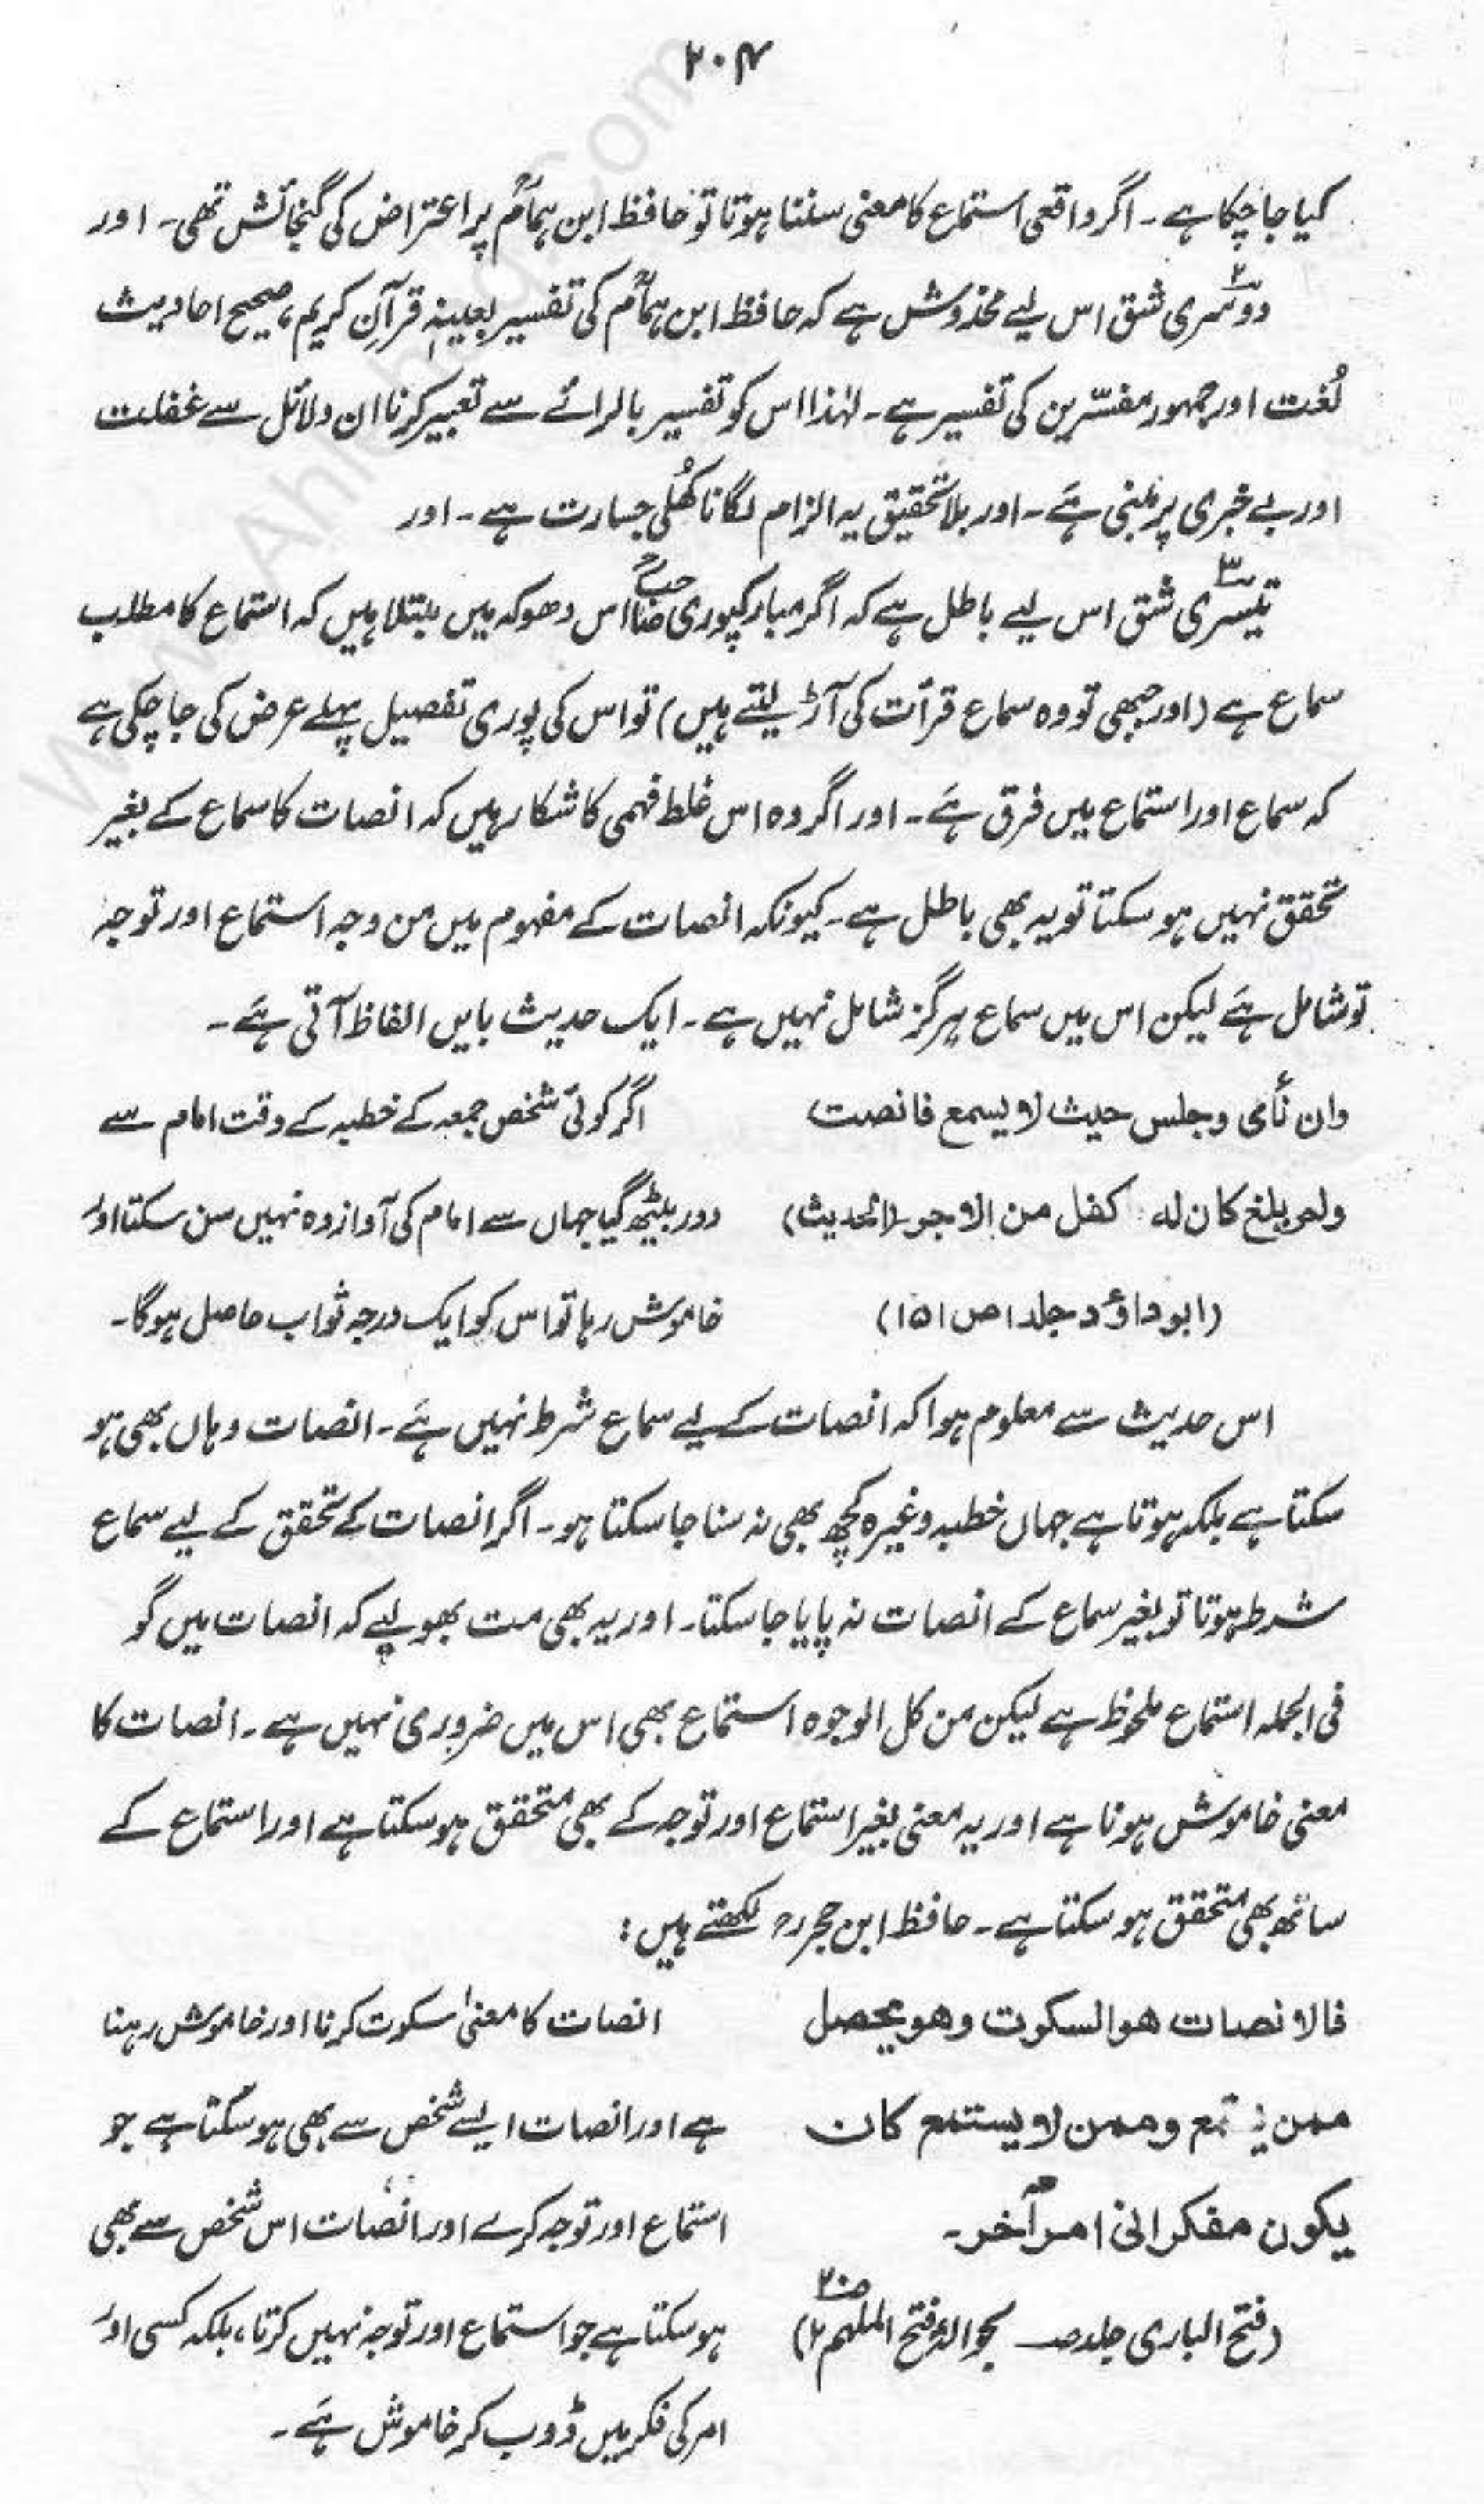 ۲۰۴
کیا جا چکا ہے۔ اگر واقعی استماع کا معنی سننا ہوتا تو حافظ ابن ہمامؒ پر اعتراض کی گنجائش تھی۔ اور
دوسری شق اس لیے مخدوش ہے کہ حافظ ابن ہمامؒ کی تفسیر بعینہٖ قرآن کریم، صحیح احادیث
لُغت اور جمہور مفسّرین کی تفسیر ہے۔ لہٰذا اس کو تفسیر بالرائے سے تعبیر کرنا ان دلائل سے غفلت
اور بے خبری پر مبنی ہے۔ اور بلا تحقیق یہ الزام لگانا کھُلی جسارت ہے۔ اور
تیسری شق اس لیے باطل ہے کہ اگر مبارکپوری صاحبؒ اس دھوکہ میں مبتلا ہیں کہ استماع کا مطلب
سماع ہے (اور جبھی تو وہ سماع قرأت کی آڑ لیتے ہیں) تو اس کی پوری تفصیل پہلے عرض کی جا چکی ہے
کہ سماع اور استماع میں فرق ہے۔ اور اگر وہ اس غلط فہمی کا شکار ہیں کہ انصات کا سماع کے بغیر
تحقق نہیں ہو سکتا تو یہ بھی باطل ہے۔ کیونکہ انصات کے مفہوم میں من وجہ استماع اور توجہ
تو شامل ہے لیکن اس میں سماع ہرگز شامل نہیں ہے۔ ایک حدیث بایں الفاظ آتی ہے۔
وان نأی وجلس حیث لا یسمع فانصت
ولم یلغ کان لہ کفل من الاجر (الحدیث)
(ابوداؤد جلد ۱ ص ۱۵۱)
اگر کوئی شخص جمعہ کے خطبہ کے وقت امام سے
دور بیٹھ گیا جہاں سے امام کی آواز وہ نہیں سن سکتا اور
خاموش رہا تو اس کو ایک درجہ ثواب حاصل ہوگا۔
اس حدیث سے معلوم ہوا کہ انصات کے لیے سماع شرط نہیں ہے۔ انصات وہاں بھی ہو
سکتا ہے بلکہ ہوتا ہے جہاں خطبہ وغیرہ کچھ بھی نہ سنا جا سکتا ہو۔ اگر انصات کے تحقق کے لیے سماع
شرط ہوتا تو بغیر سماع کے انصات نہ پایا جا سکتا۔ اور یہ بھی مت بھولیے کہ انصات میں گو
فی الجملہ استماع ملحوظ ہے لیکن من کل الوجوہ استماع بھی اس میں ضروری نہیں ہے۔ انصات کا
معنی خاموش ہونا ہے اور یہ معنی بغیر استماع اور توجہ کے بھی متحقق ہو سکتا ہے اور استماع کے
ساتھ بھی متحقق ہو سکتا ہے۔ حافظ ابن حجرؒ لکھتے ہیں:
فالانصات ھو السکوت وھو یحصل
ممن وممن لا یستمع کان
یکون مفکرا فی امر آخر۔
(فتح الباری جلد ص بحوالہ فتح الملہم ۲ ص۲۰)
انصات کا معنیٰ سکوت کرنا اور خاموش رہنا
ہے اور انصات ایسے شخص سے بھی ہو سکتا ہے جو
استماع اور توجہ کرے اور انصات اس شخص سے بھی
ہو سکتا ہے جو استماع اور توجہ نہیں کرتا، بلکہ کسی اور
امر کی فکر میں ڈوب کر خاموش ہے۔